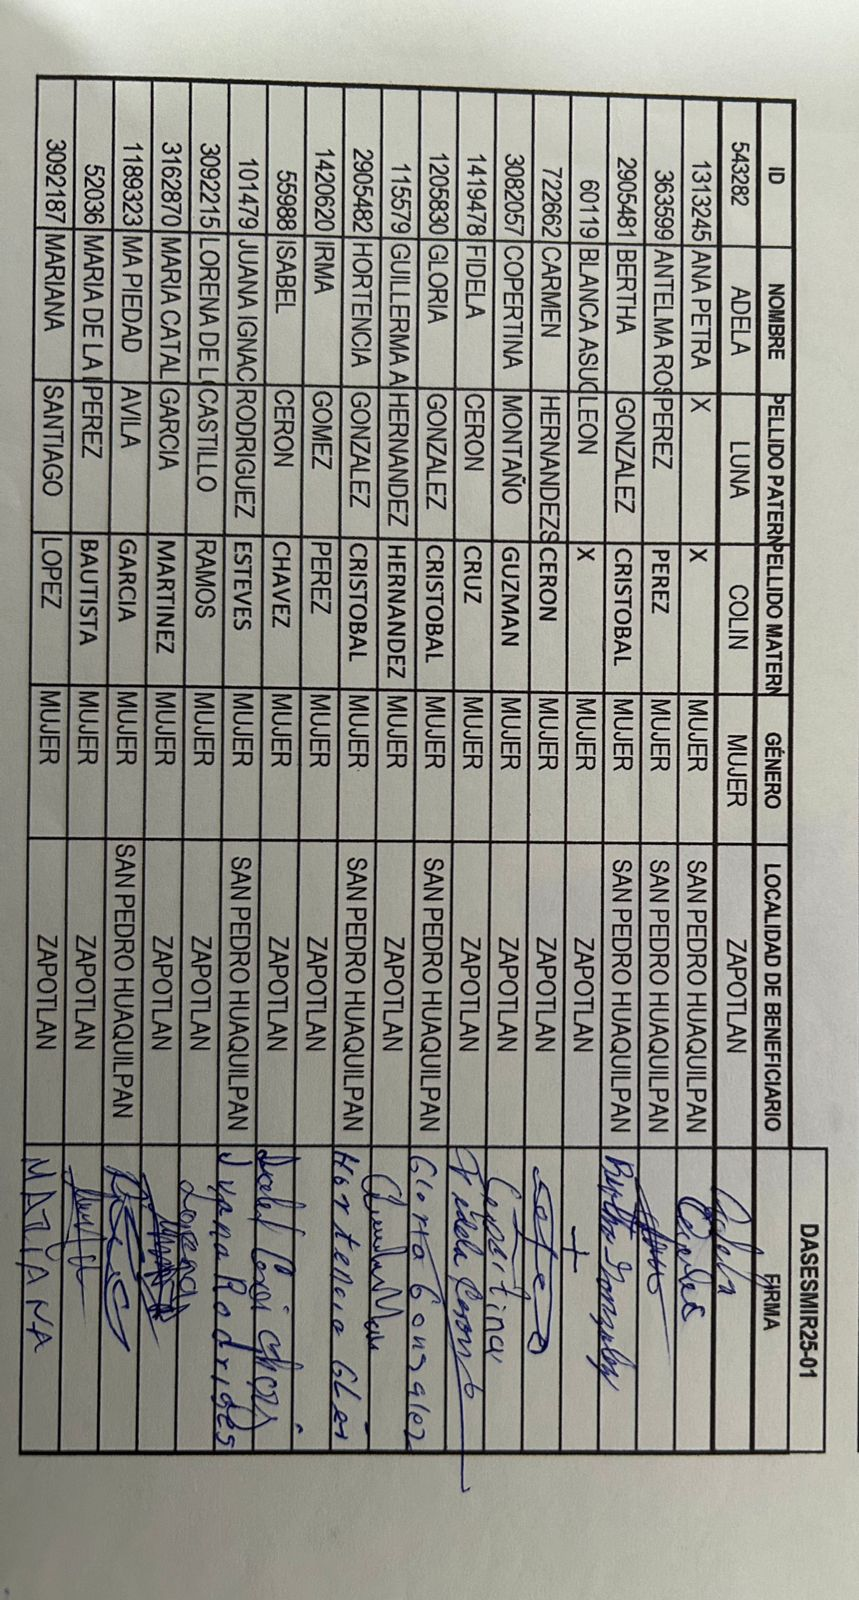 DASESMIR25-01
ID NOMBRE PELLIDO PATERN PELLIDO MATERN GÉNERO LOCALIDAD DE BENEFICIARIO FIRMA
543282 ADELA LUNA COLIN MUJER ZAPOTLAN Adela
1313245 ANA PETRA X X MUJER SAN PEDRO HUAQUILPAN
363599 ANTELMA ROS PEREZ PEREZ MUJER SAN PEDRO HUAQUILPAN
2905481 BERTHA GONZALEZ CRISTOBAL MUJER SAN PEDRO HUAQUILPAN Bertha Gonzalez
60119 BLANCA ASUC LEON X MUJER ZAPOTLAN
722662 CARMEN HERNANDEZS CERON MUJER ZAPOTLAN
3082057 COPERTINA MONTAÑO GUZMAN MUJER ZAPOTLAN Copertina
1419478 FIDELA CERON CRUZ MUJER ZAPOTLAN Fidela Ceron
1205830 GLORIA GONZALEZ CRISTOBAL MUJER SAN PEDRO HUAQUILPAN Gloria Gonzalez
115579 GUILLERMA A HERNANDEZ HERNANDEZ MUJER ZAPOTLAN
2905482 HORTENCIA GONZALEZ CRISTOBAL MUJER SAN PEDRO HUAQUILPAN Hortencia
1420620 IRMA GOMEZ PEREZ MUJER ZAPOTLAN
55988 ISABEL CERON CHAVEZ MUJER ZAPOTLAN
101479 JUANA IGNAC RODRIGUEZ ESTEVES MUJER SAN PEDRO HUAQUILPAN Juana Rodriges
3092215 LORENA DE L CASTILLO RAMOS MUJER ZAPOTLAN Lorena
3162870 MARIA CATAL GARCIA MARTINEZ MUJER ZAPOTLAN
1189323 MA PIEDAD AVILA GARCIA MUJER SAN PEDRO HUAQUILPAN
52036 MARIA DE LA PEREZ BAUTISTA MUJER ZAPOTLAN
3092187 MARIANA SANTIAGO LOPEZ MUJER ZAPOTLAN MARIANA